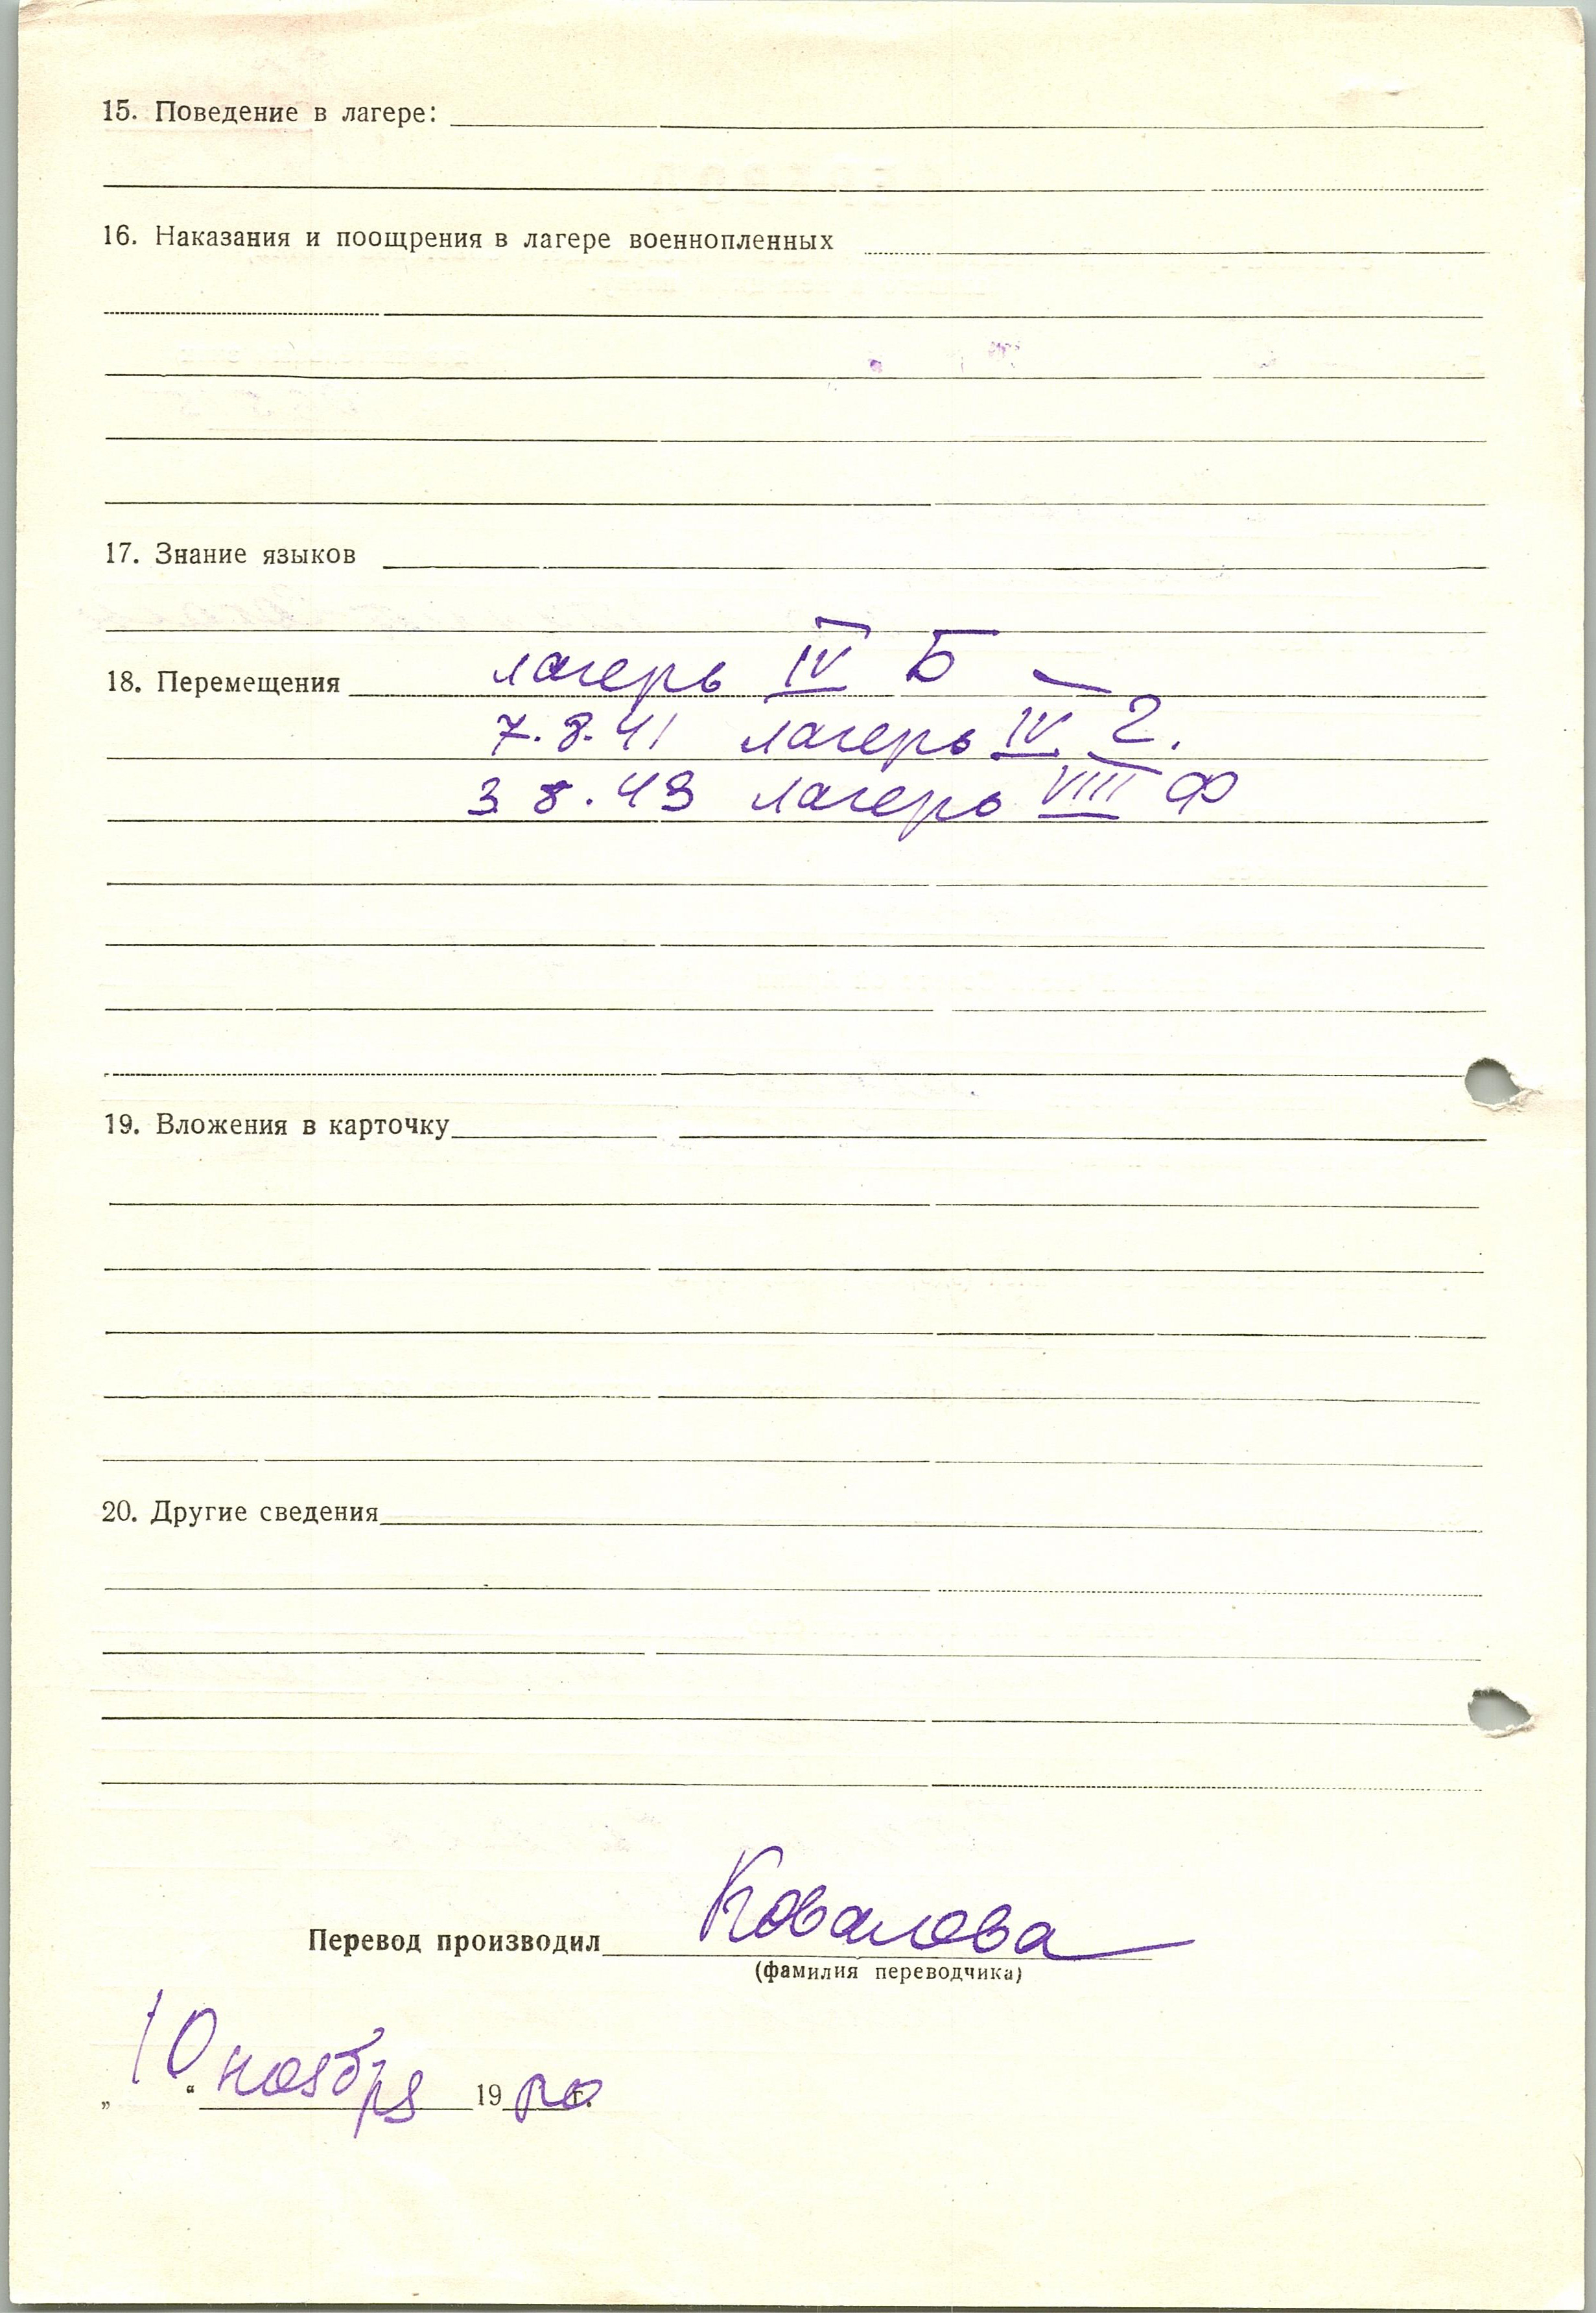 15. Поведение в лагере:
16. Наказания и поощрения в лагере военнопленных
17. Знание языков
18. Перемещения лагерь IV Б
7.8.41 лагерь IV Г.
3 8.43 лагерь VIII Ф
19. Вложения в карточку
20. Другие сведения
Перевод производил Ковалова
(фамилия переводчика)
„10“ ноября 19 г.